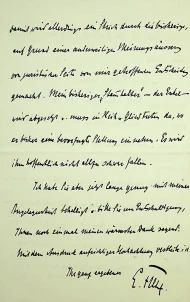 damit wird allerdings ein Strich durch die bisherige,
auf Grund einer anderweitigen Meinungsäusserung
von juristischer Seite von mir getroffenen Entscheidung
gemacht. Mein bisheriger "Statthalter" — der
wird abgesetzt, muss im Reich
es bisher eine bevorzugte Stellung einnahm. Es wird
ihm hoffentlich nicht allzu schwer fallen.
Ich habe Sie aber jetzt lange genug mit meinen
Angelegenheiten behelligt, bitte Sie um Entschuldigung,
Ihnen noch einmal meinen wärmsten Dank sagend.
Mit dem Ausdruck aufrichtiger Hochachtung verbleibe ich
Ihr ganz ergebener